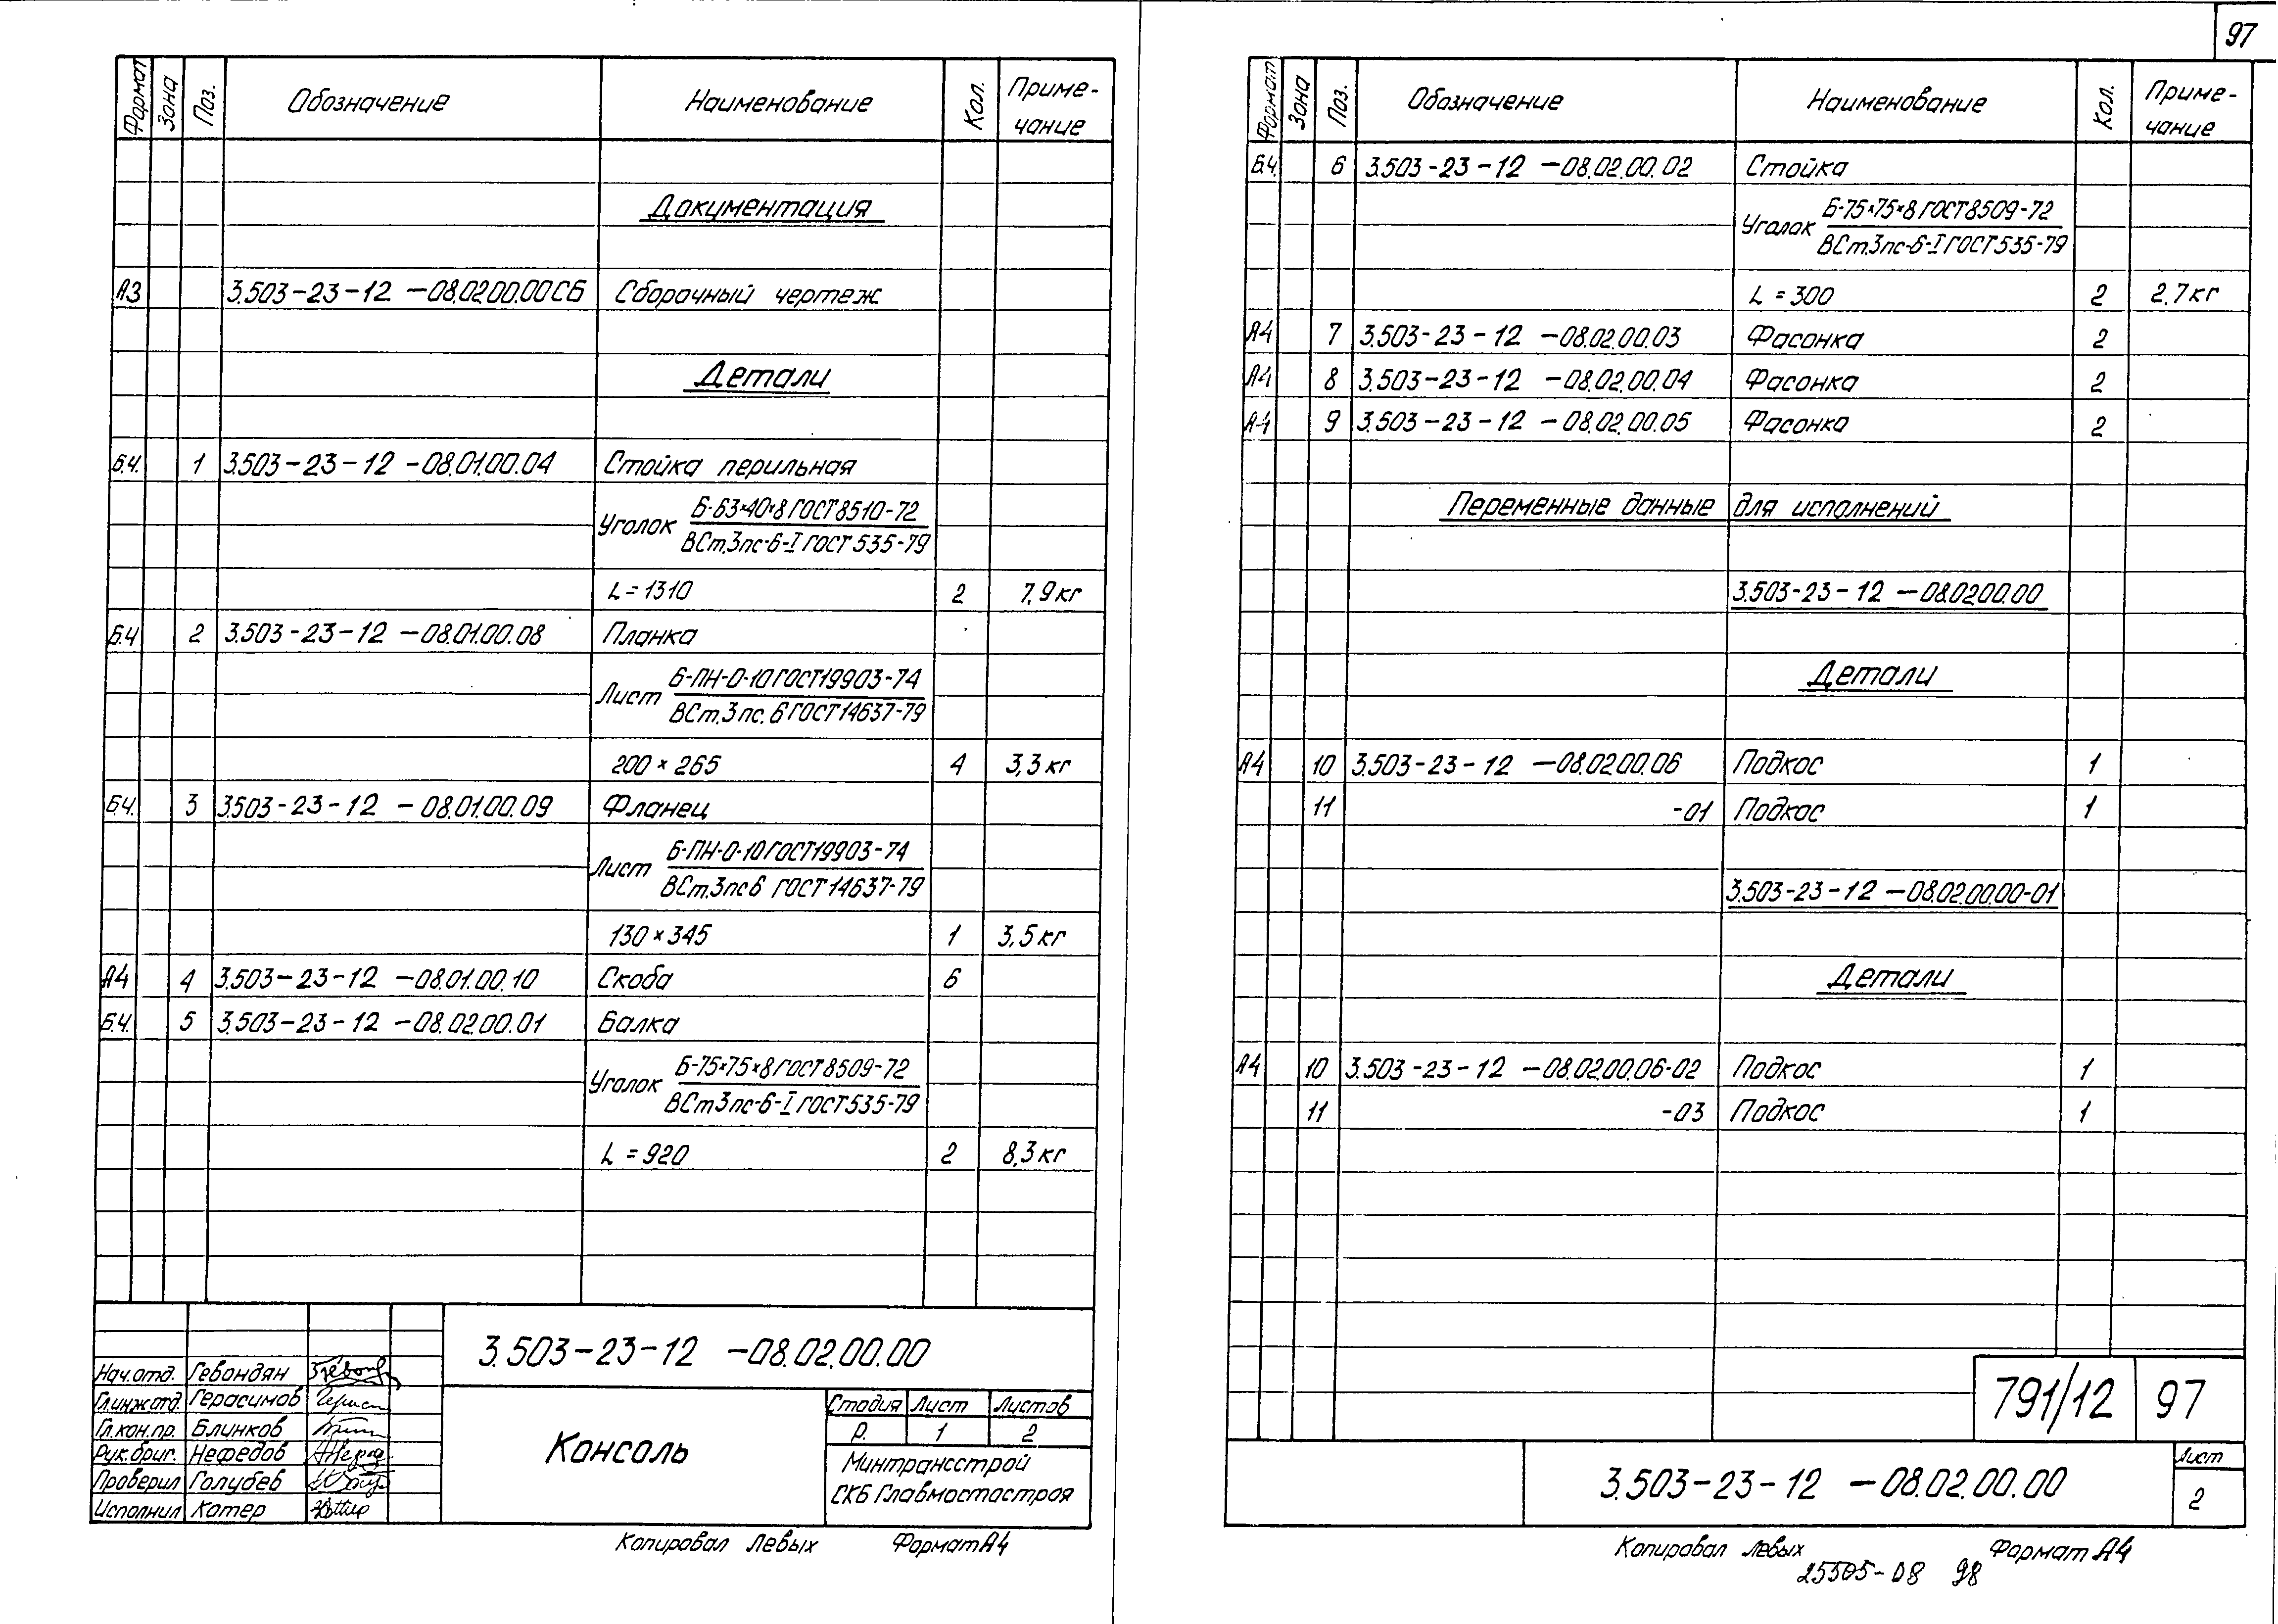 97
Формат Зона Поз. Обозначение Наименование Кол. Приме-
чание
Документация
А3 3.503-23-12 -08.02.00.00СБ Сборочный чертеж
Детали
Б.Ч. 1 3.503-23-12 -08.01.00.04 Стойка перильная
Уголок Б-63×40×8 ГОСТ 8510-72
ВСт.3пс-6-I ГОСТ 535-79
L=1310 2 7,9 кг
Б.Ч 2 3.503-23-12 -08.01.00.08 Планка
Лист Б-ПН-О-10 ГОСТ 19903-74
ВСт.3пс.6 ГОСТ 14637-79
200 × 265 4 3,3 кг
Б.Ч. 3 3.503-23-12 -08.01.00.09 Фланец
Лист Б-ПН-О-10 ГОСТ 19903-74
ВСт.3пс6 ГОСТ 14637-79
130 × 345 1 3,5 кг
А4 4 3.503-23-12 -08.01.00.10 Скоба 6
Б.Ч. 5 3.503-23-12 -08.02.00.01 Балка
Уголок Б-75×75×8 ГОСТ 8509-72
ВСт3пс-6-I ГОСТ 535-79
L=920 2 8,3 кг
3.503-23-12 -08.02.00.00
Нач.отд. Гевондян
Гл.инж.отд. Герасимов
Гл.кон.пр. Блинков
Рук.бриг. Нефедов
Проверил Голубев
Исполнил Котер
Консоль
Стадия Лист Листов
Р. 1 2
Минтрансстрой
СКБ Главмостостроя
Копировал Левых Формат А4
Формат Зона Поз. Обозначение Наименование Кол. Приме-
чание
Б.Ч. 6 3.503-23-12 -08.02.00.02 Стойка
Уголок Б-75×75×8 ГОСТ 8509-72
ВСт.3пс-6-I ГОСТ 535-79
L=300 2 2.7 кг
А4 7 3.503-23-12 -08.02.00.03 Фасонка 2
А4 8 3.503-23-12 -08.02.00.04 Фасонка 2
А4 9 3.503-23-12 -08.02.00.05 Фасонка 2
Переменные данные для исполнений
3.503-23-12 -08.02.00.00
Детали
А4 10 3.503-23-12 -08.02.00.06 Подкос 1
11 -01 Подкос 1
3.503-23-12 -08.02.00.00-01
Детали
А4 10 3.503-23-12 -08.02.00.06-02 Подкос 1
11 -03 Подкос 1
791/12 97
3.503-23-12 -08.02.00.00
Лист
2
Копировал Левых Формат А4
25505-08 98